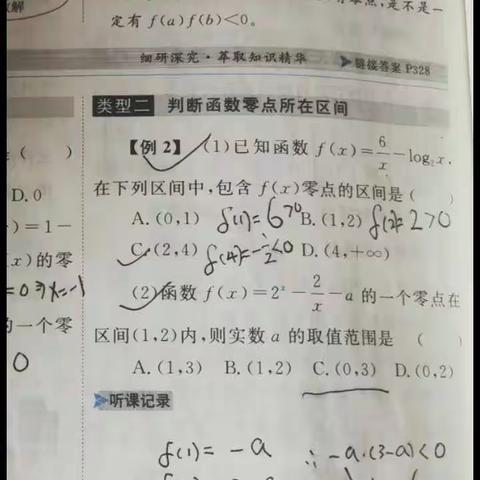 定有 f(a)f(b)<0。
细研深究·萃取知识精华 链接答案 P328
类型二 判断函数零点所在区间
【例 2】 (1)已知函数 f(x)=6/x-log₂x.
在下列区间中,包含 f(x)零点的区间是( )
A.(0,1) f(1)=6>0 B.(1,2) f(2)=2>0
C.(2,4) f(4)=-1/2<0 D.(4,+∞)
(2)函数 f(x)=2ˣ-2/x-a 的一个零点在
区间(1,2)内,则实数 a 的取值范围是 ( )
A.(1,3) B.(1,2) C.(0,3) D.(0,2)
听课记录
f(1)=-a ∴-a·(3-a)<0
( )
D.0
)=1-
x)的零
=0⇒x=-1
的一个零
0